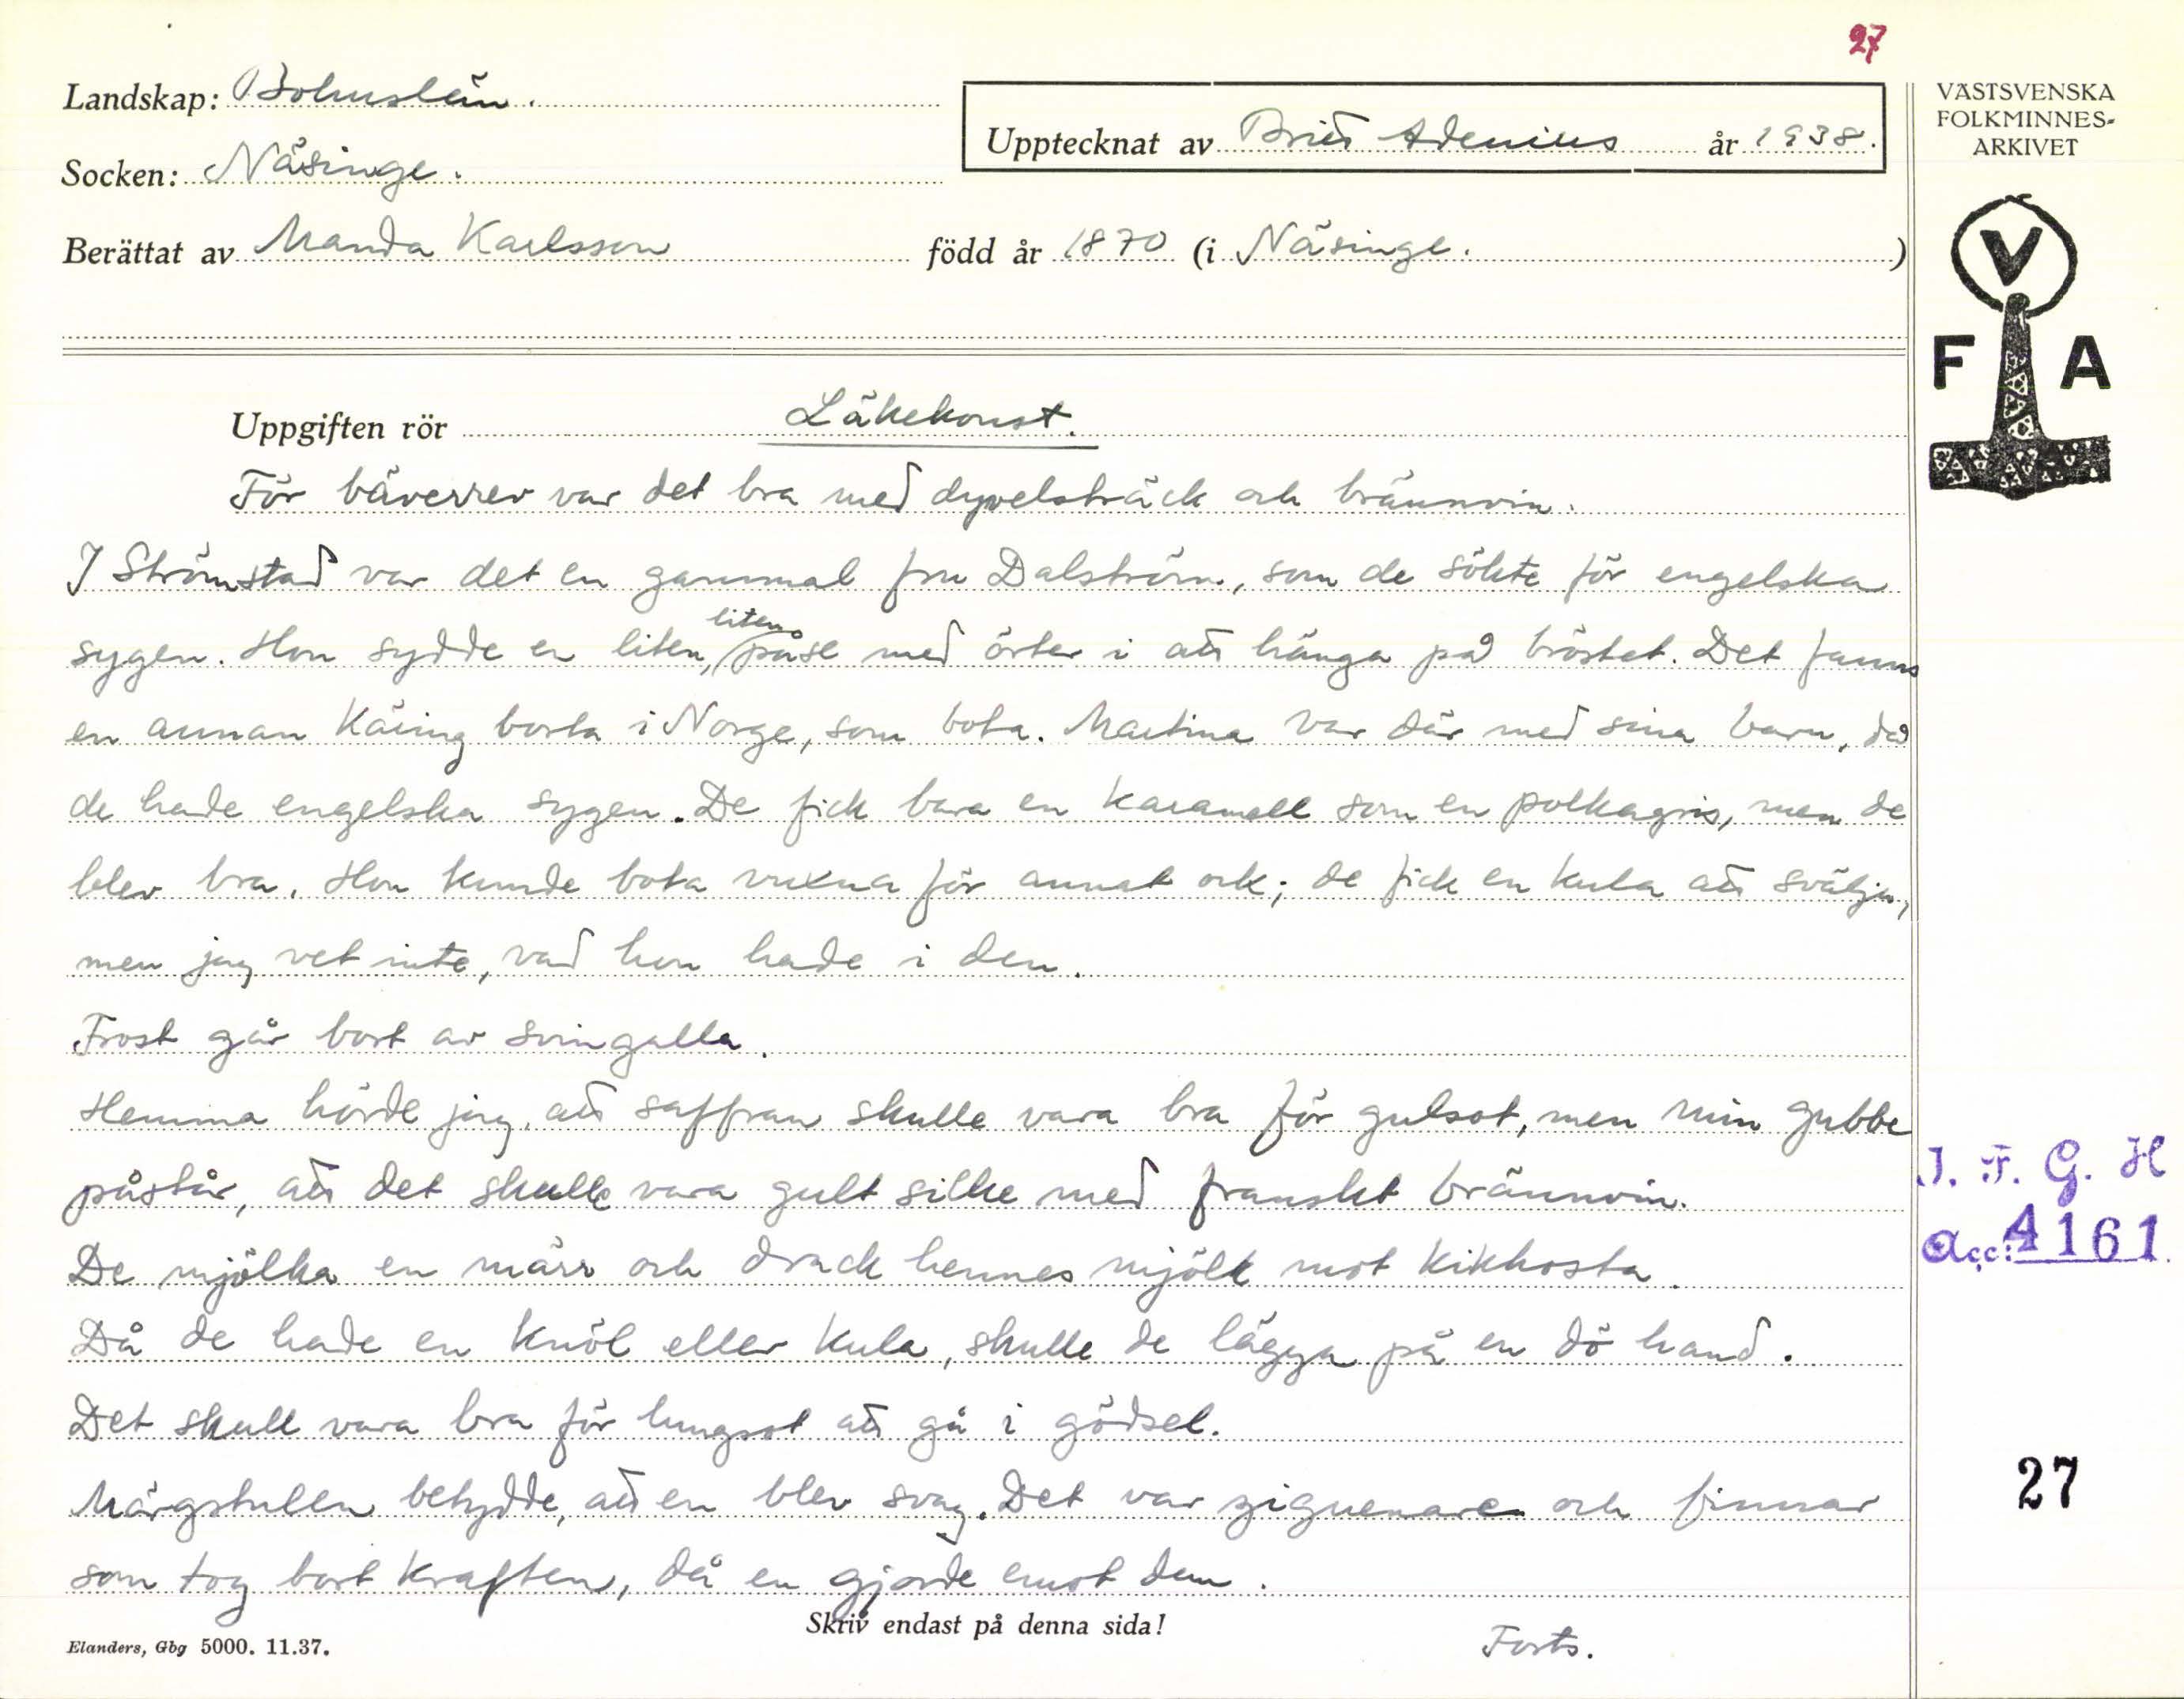 27
Landskap: Bohuslän.
Upptecknat av Britt Adenius år 1938.
VÄSTSVENSKA
FOLKMINNES-
ARKIVET
Socken: Näsinge.
Berättat av Manda Karlsson född år 1870 (i Näsinge.)
V
F A
Uppgiften rör Läkekonst.
För bäverrev var det bra med dyvelsträck och brännvin.
I Strömstad var det en gammal fru Dalström, som de sökte för engelska
sygen. Hon sydde en liten, liten påse med örter i att hänga på bröstet. Det fanns
en annan käring borta i Norge, som bota. Martina var där med sina barn, då
de hade engelska sygen. De fick bara en karamell som en polkagris, men de
blev bra. Hon kunde bota vuxna för annat ock; de fick en kula att svälja,
men jag vet inte, vad hon hade i den.
Frost går bort av svingalla.
Hemma hörde jag, att saffran skulle vara bra för gulsot, men min gubbe
påstår, att det skulle vara gult silke med franskt brännvin.
De mjölka en märr och drack hennes mjölk mot kikhosta.
Då de hade en knöl eller kula, skulle de lägga på en dö hand.
Det skull vara bra för lungsot att gå i gödsel.
Märgstulen betydde, att en blev svag. Det var ziguenare och finnar
som tog bort kraften, då en gjorde emot dem.
I. F. G. H
Acc: 4161.
27
Skriv endast på denna sida!
Elanders, Gbg 5000. 11.37.
Forts.